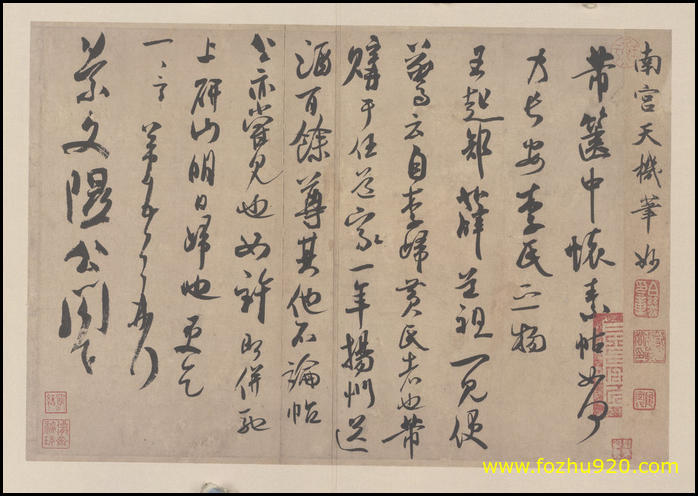 南宮天機筆妙
芾篋中懷素帖如何
乃長安李氏之物
王起部薛道祖一見便
驚云自李歸黃氏者也芾
購于任道家一年揚州送
酒百餘尊其他不論帖
公亦嘗見也如許即併馳
上研山明日歸也更乞
一言芾頓首再拜
景文隰公閤下
www.fozhu920.com